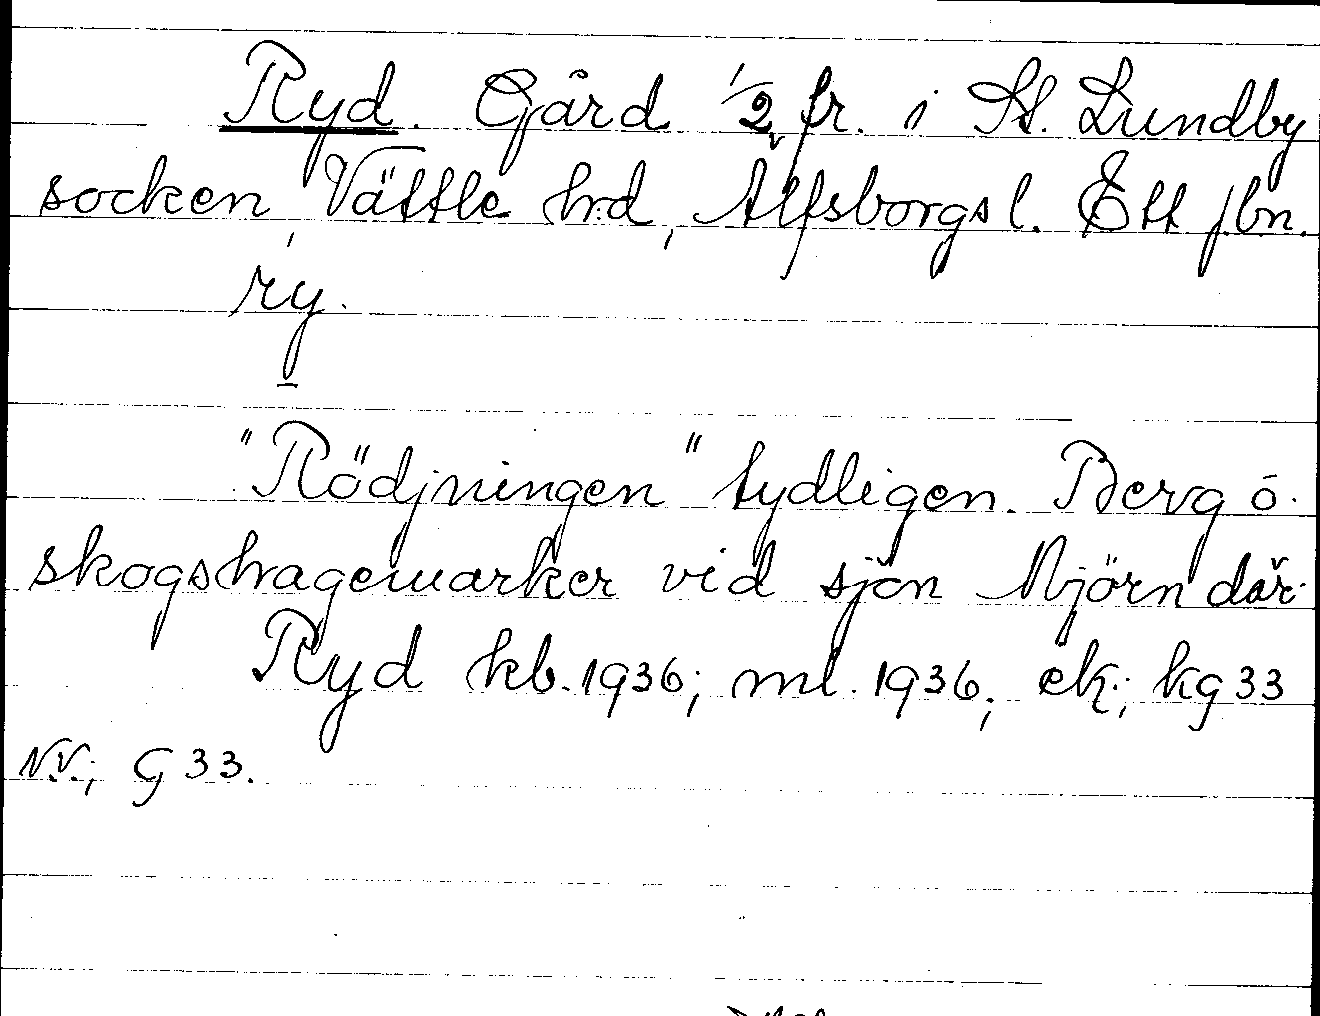 Ryd. Gård 1/2 fr. i St. Lundby
socken, Vättle hd, Älfsborgs l. Ett jbn.
ry.
"Rödjningen" tydligen. Berg o.
skogshagemarker vid sjön Mjörn där.
Ryd kb. 1936; ml. 1936; ek.; kg 33
N.V.; G 33.